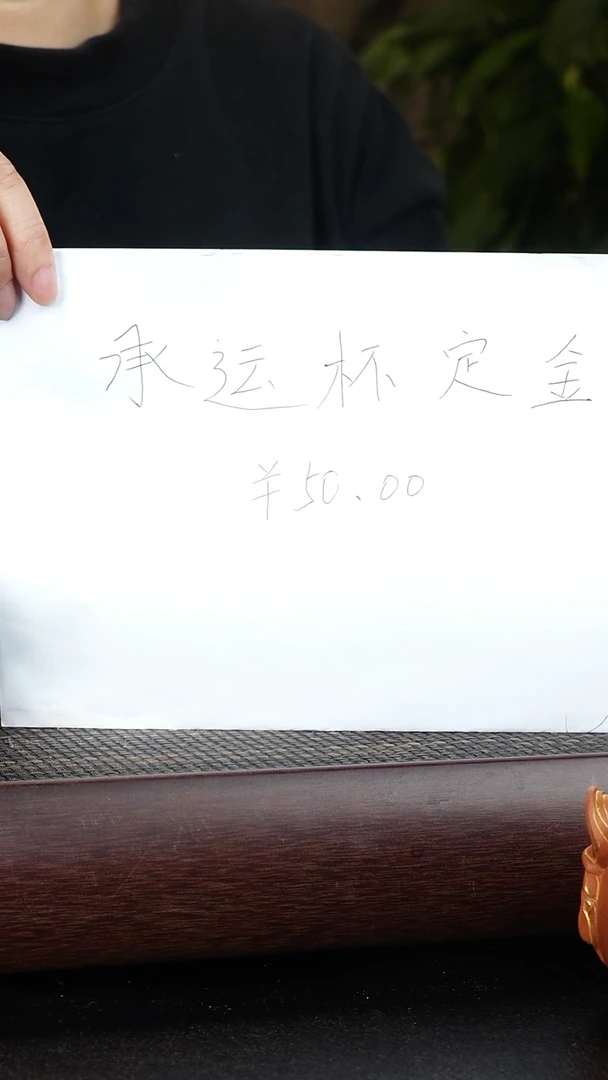 承运杯定金
¥50.00